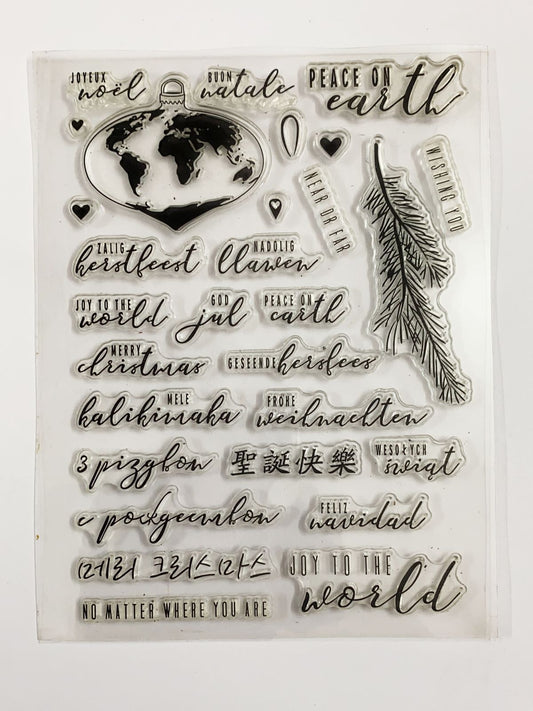 JOYEUX
noël
BUON
natale
PEACE ON
earth
WISHING YOU
NEAR OR FAR
ZALIG
herstfeest
NADOLIG
llawen
JOY TO THE
world
GOD
jul
PEACE ON
earth
MERRY
christmas
GESEENDE hersfees
MELE
kalikimaka
FROHE
weihnachten
З різдвом
聖誕快樂
WESOŁYCH
świąt
с рождеством
FELIZ
navidad
메리 크리스마스
JOY TO THE
world
NO MATTER WHERE YOU ARE